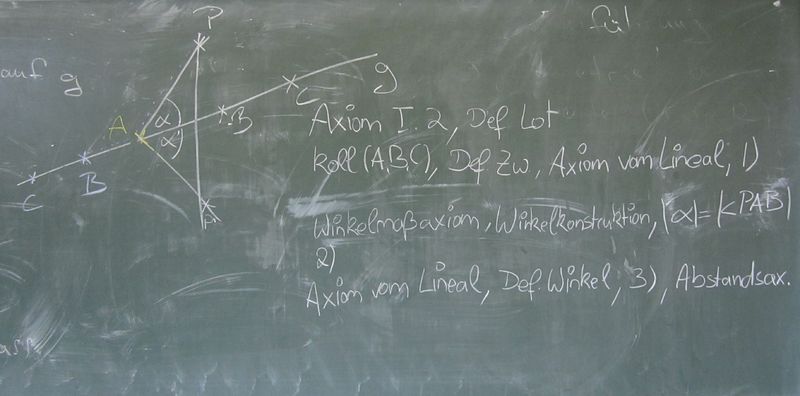 auf g
P
g
C
B
A
α
α'
B
C
Axiom I.2, Def Lot
Koll(A,B,C), Def Zw, Axiom vom Lineal, 1)
Winkelmaßaxiom, Winkelkonstruktion, |α|=|∢PAB|
2)
Axiom vom Lineal, Def. Winkel, 3), Abstandsax.